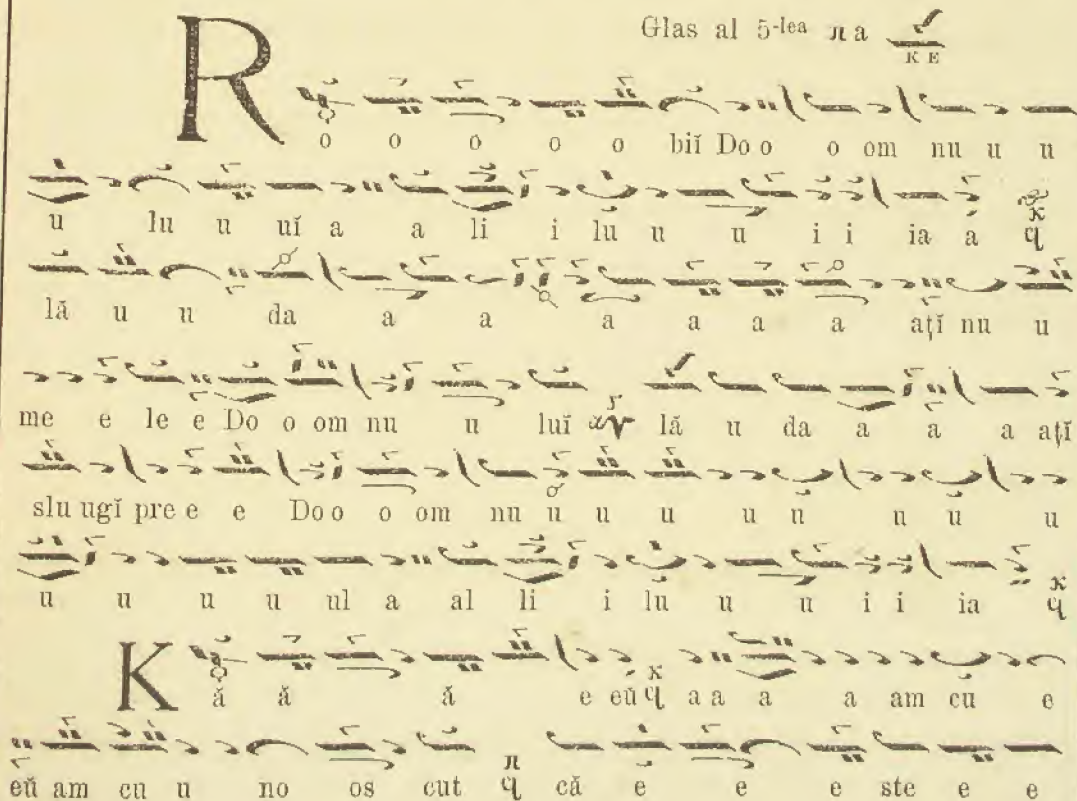 Glas al 5-lea πa
K E
R o o o o o biĭ Do o o om nu u u
u lu u uĭ a a li i lŭ u u i i ia a
lă u u da a a a a a a aţĭ nu u
me e le e Do o om nu u luĭ lă u da a a a aţĭ
slu ugĭ pre e e Do o o om nu u u u u ŭ u ŭ u
u u u u ul a al li i lŭ u u i i ia
K ă ă ă e eŭ a a a a am cŭ e
eŭ am cu u no os cut că e e e ste e e